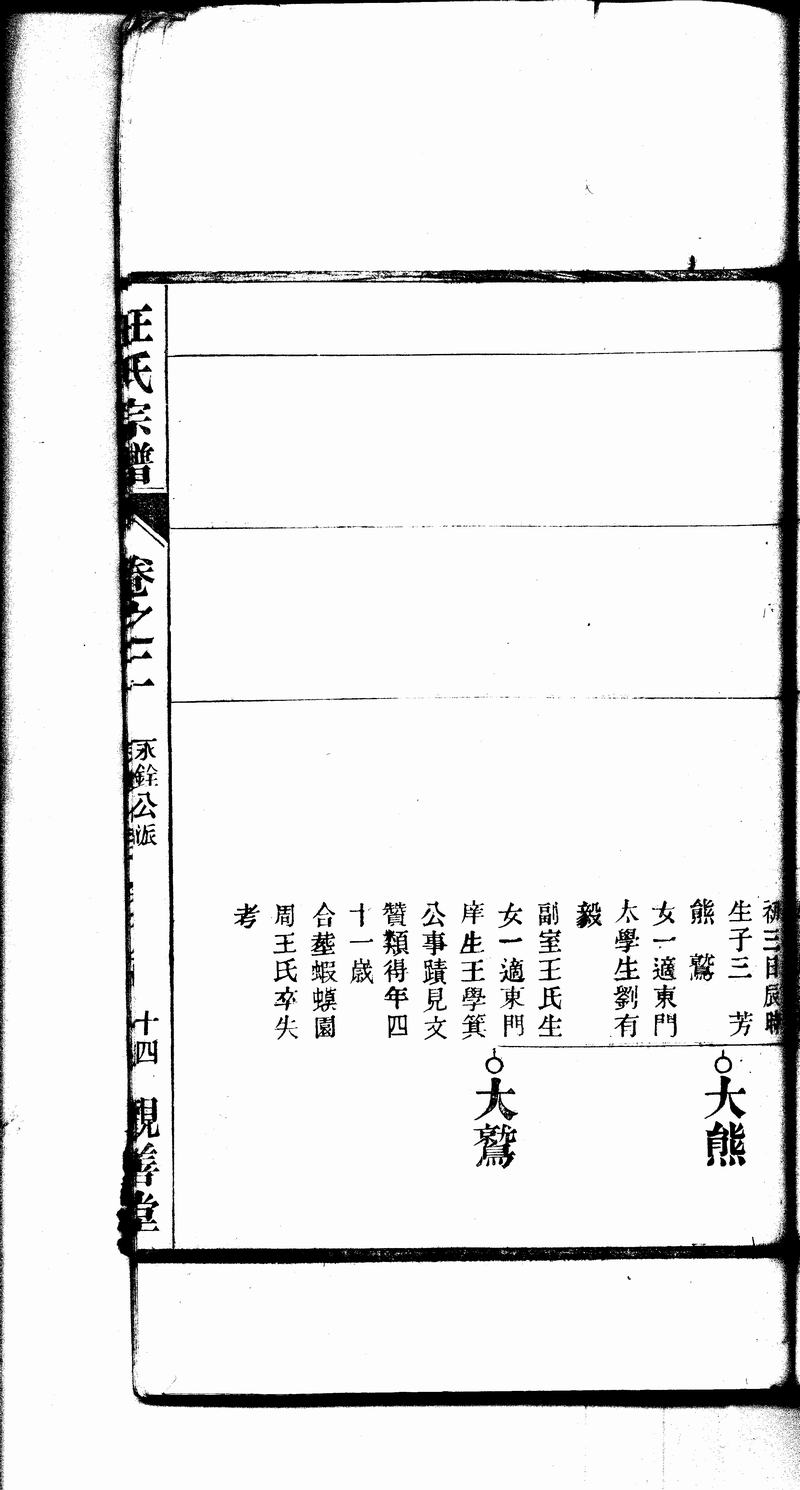 三 辰
生子三　芳
熊　鷲
女一適東門
太學生劉有
毅
副室王氏生
女一適東門
庠生王學箕
公事蹟見文
贊類得年四
十一歲
合墓蝦蟆園
周王氏卒失
考
大熊
大鷲
氏宗譜
卷之
永銓公派
十四
親善堂